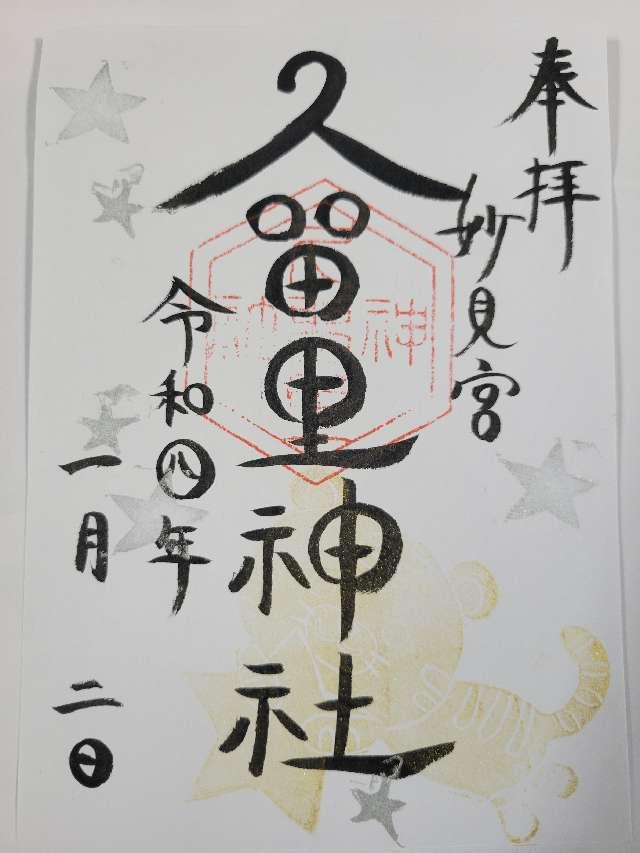 奉拝
妙見宮
久留里神社
令和四年
一月二日